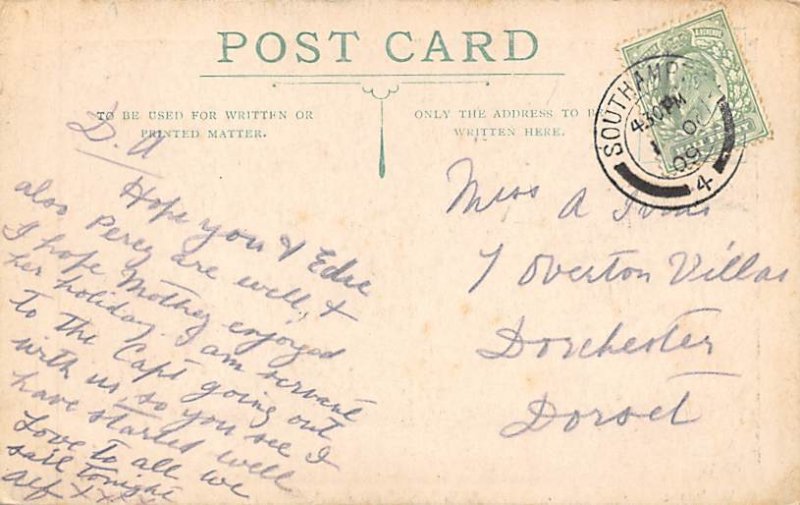 POST CARD
TO BE USED FOR WRITTEN OR
PRINTED MATTER.
ONLY THE ADDRESS TO B
WRITTEN HERE.
SOUTHAMP
430PM
09
4
D. A
Hope you & Edie
also Percy are well, &
I hope Mother enjoyed
her holiday. I am servant
to the Capt going out
with us so you see I
have started well
Love to all we
sail tonight
Alf XXXX
Miss A
7 Overton Villas
Dorchester
Dorset